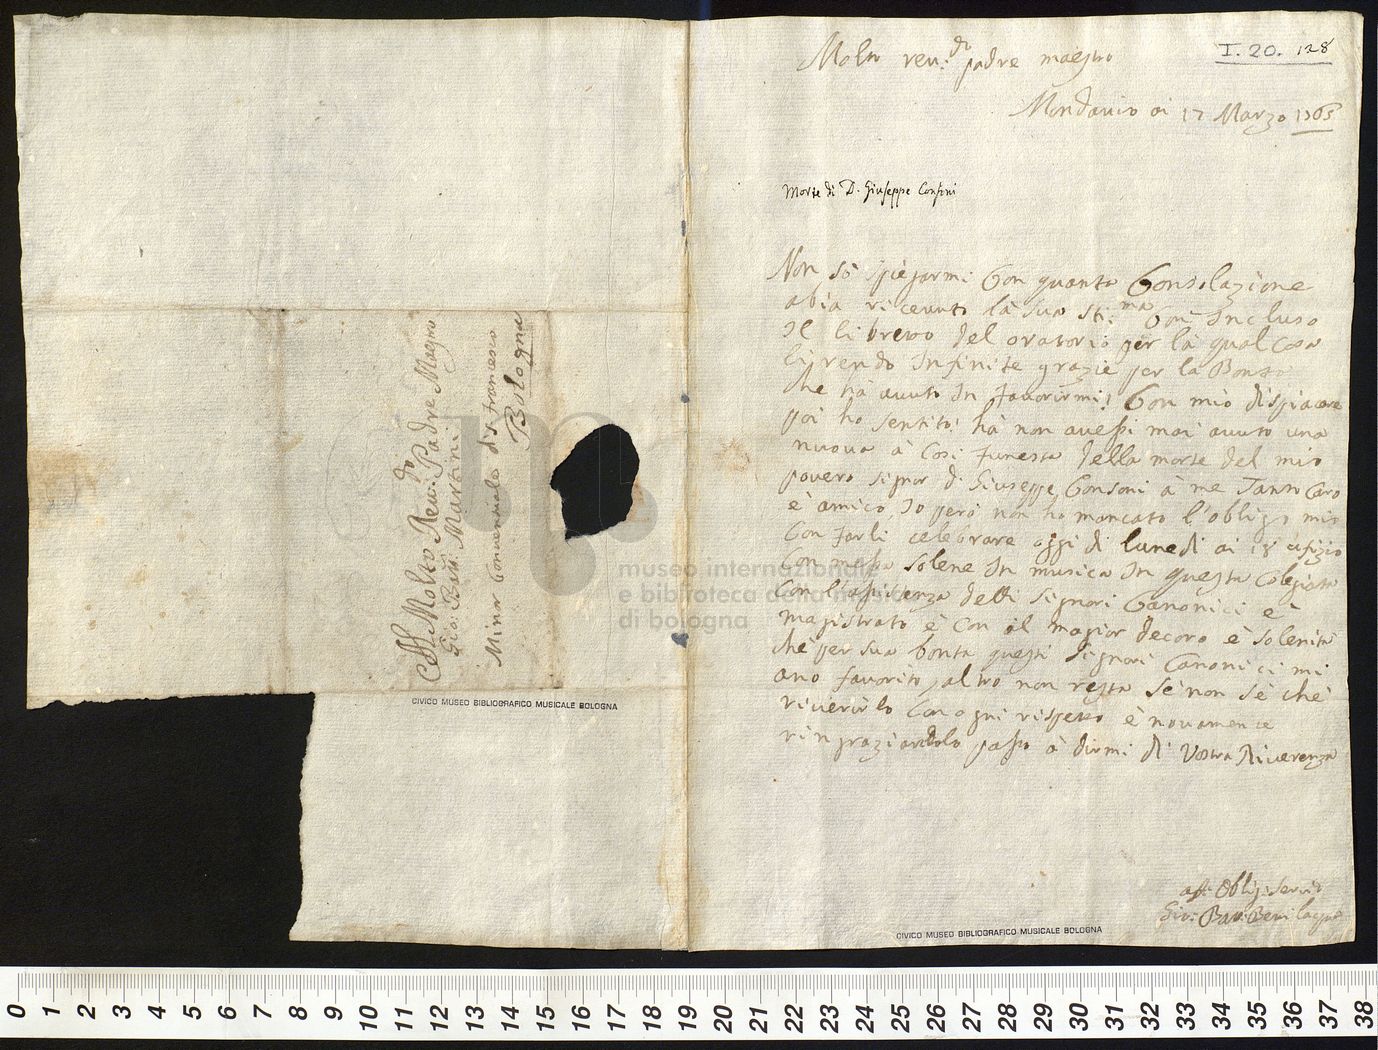 Al Molto Reu: do Padre Magro
Gio: Batt: Martini
Minor Conventuale di S francesco
Bologna
CIVICO MUSEO BIBLIOGRAFICO MUSICALE BOLOGNA
I. 20. 128
Molto reu: do padre maestro
Mondavio ai 17 Marzo 1763
Morte di D. Giuseppe Consini
Non sò spiegarmi Con quanta Consolazione
abia riceuuto la sua sti: ma Con Incluso
Il libretto del oratorio per la qual Cosa
li rendo Infinite grazie per la Bontà
che hà auuto In fauorirmi! Con mio dispiacere
poi ho sentito! hà non auessi mai auuto una
nuoua à Cosi funesta della morte del mio
pouero signor D. Giuseppe Consoni à me Tanto Caro
è amico, Io però non ho mancato l'obligo mio
Con farli celebrare oggi di lunedi ai 18 ufizio
Con messa solene In musica In questa Colegiata
Con l'assistenza delli signori Canonici è
magistrato è Con il magior decoro è solenità
che per sua bontà questi signori Canonici mi
ano favorito, altro non resta se non sè che
riuerirlo Con ogni rispetto è nouamente
ringraziandolo passo à dirmi di Vostra Riuerenza
aff: Oblig: Servid
Gio: Bat: Beuilaqua
CIVICO MUSEO BIBLIOGRAFICO MUSICALE BOLOGNA
museo internazionale
e biblioteca della musica
di bologna
0 1 2 3 4 5 6 7 8 9 10 11 12 13 14 15 16 17 18 19 20 21 22 23 24 25 26 27 28 29 30 31 32 33 34 35 36 37 38